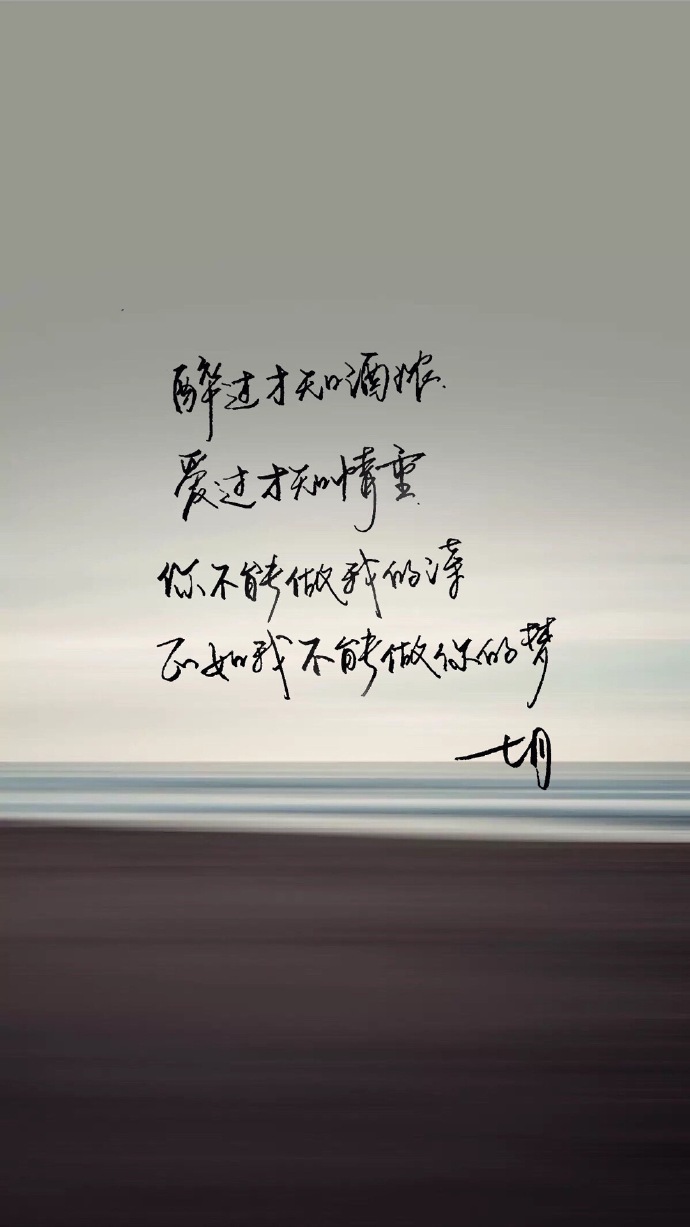 醉过才知酒浓
爱过才知情重
你不能做我的诗
正如我不能做你的梦
—七月